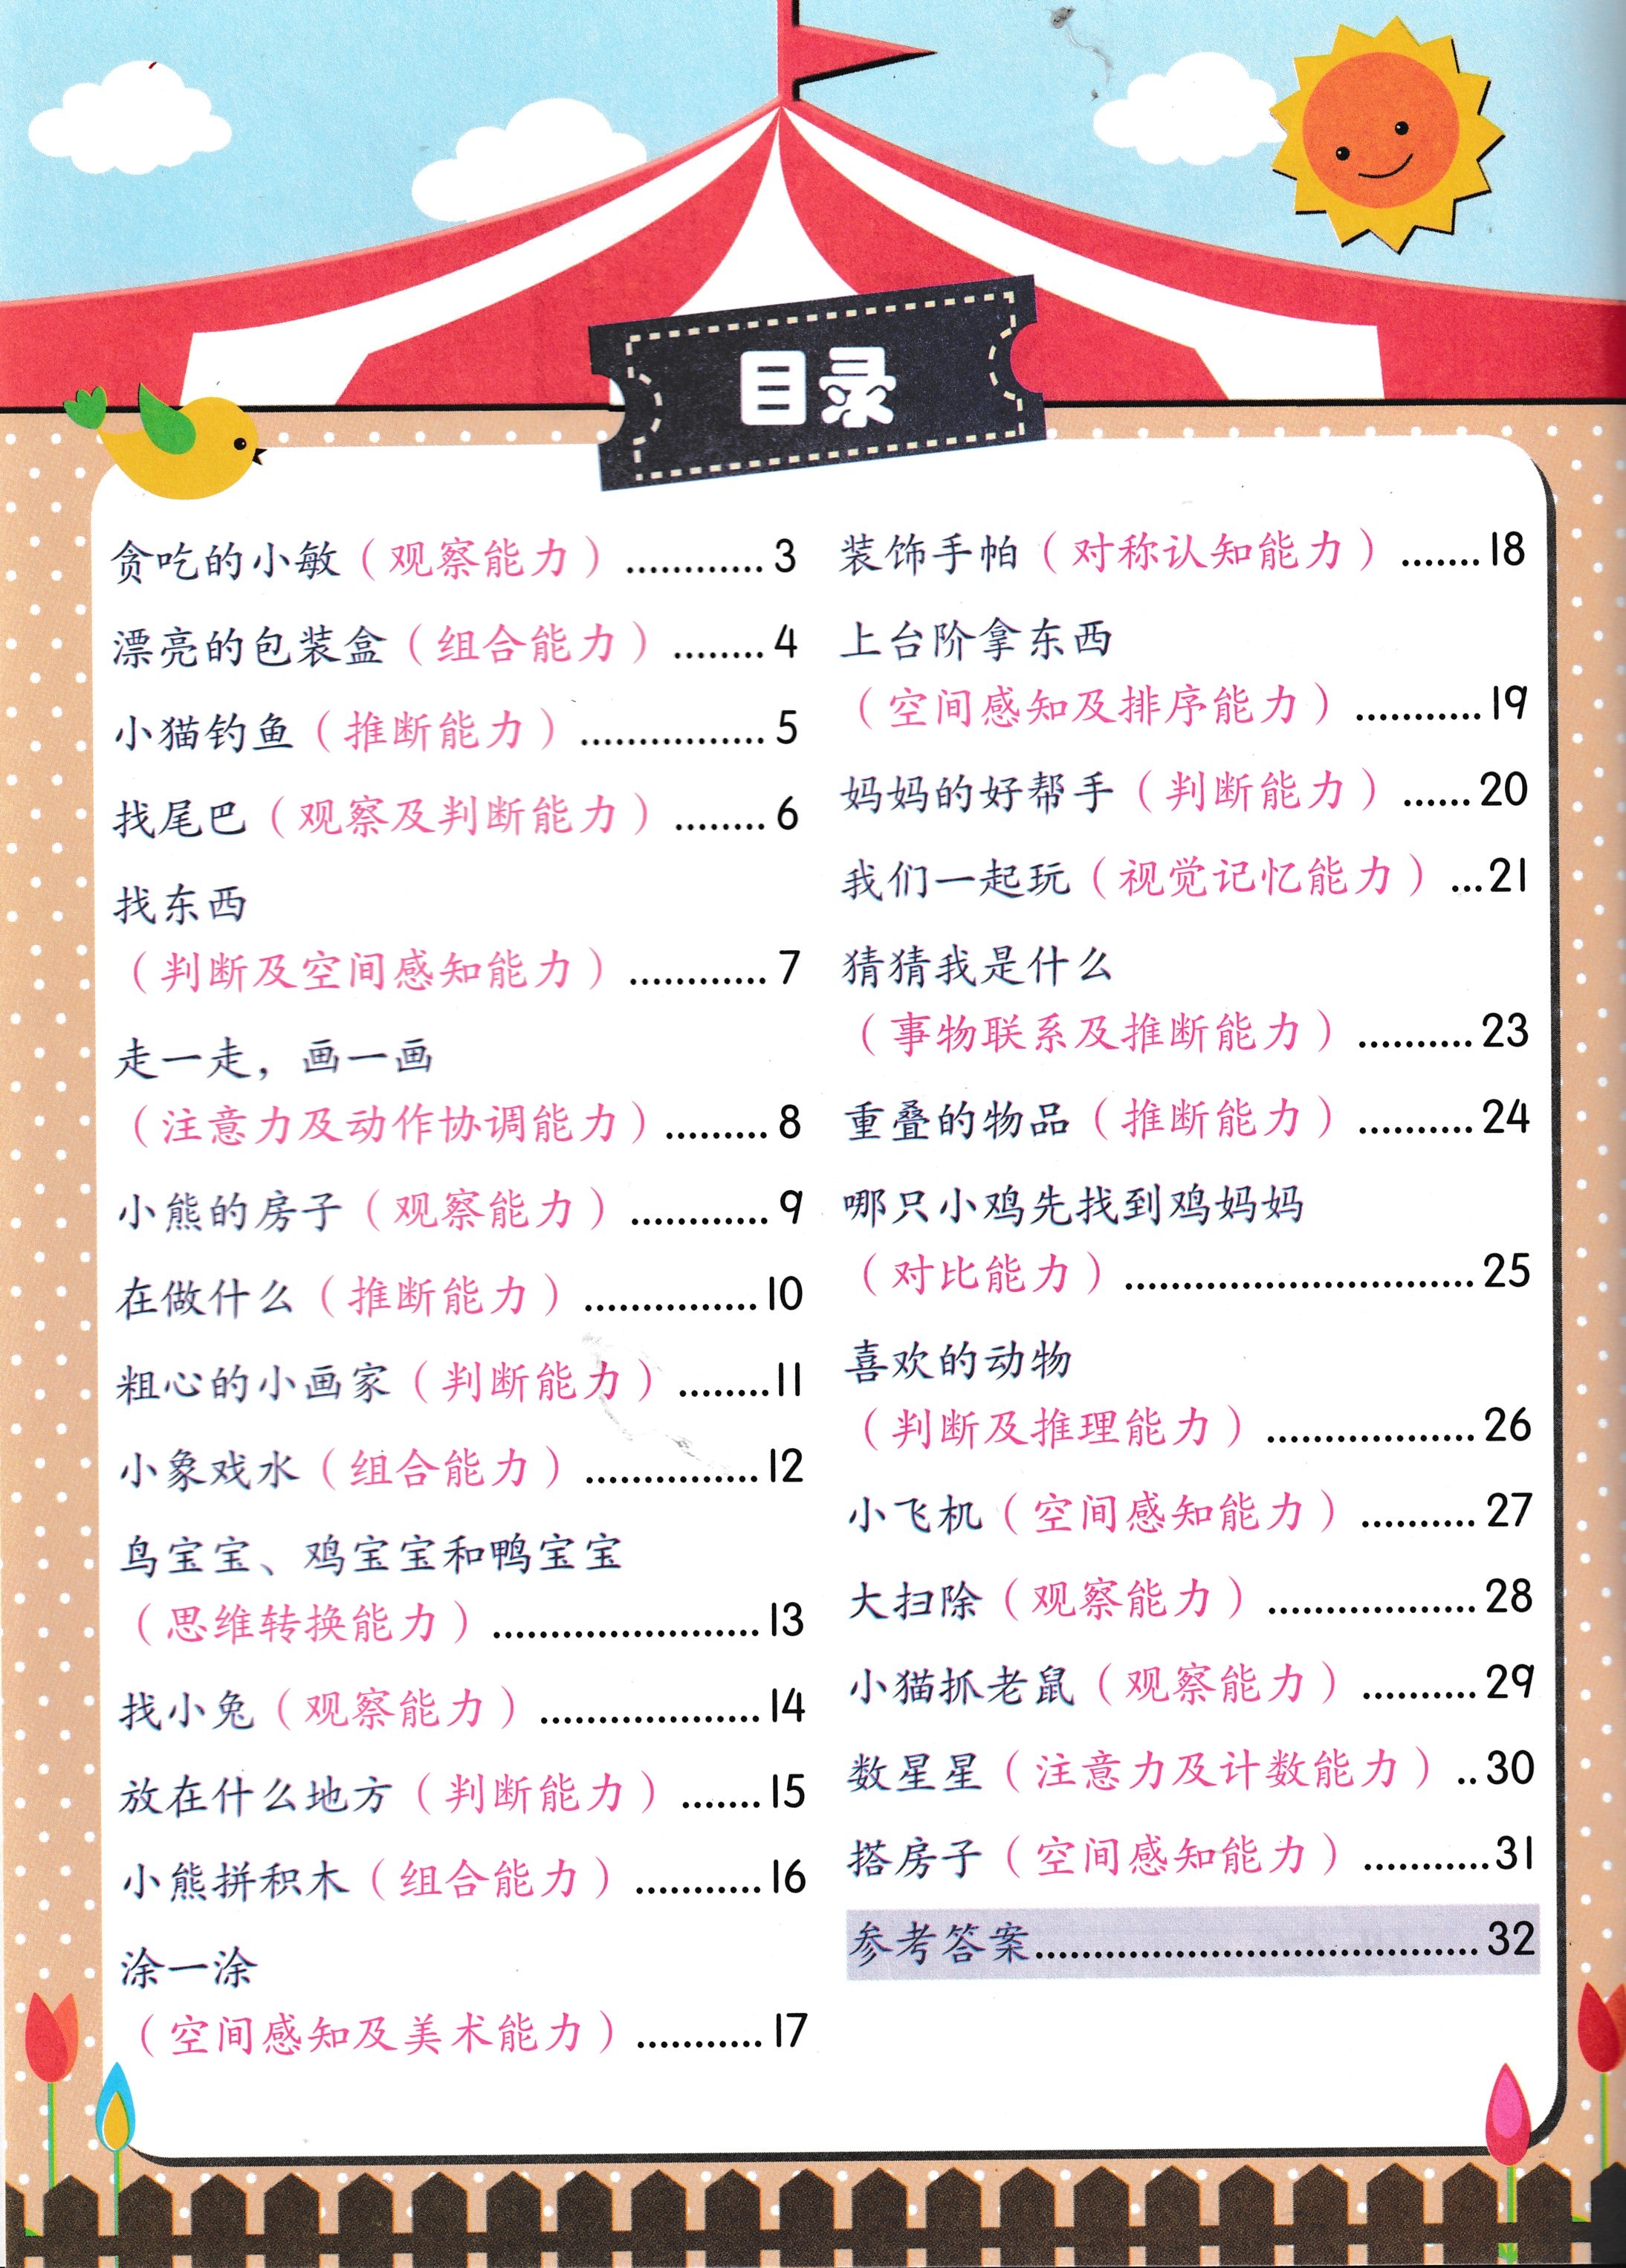 目录
贪吃的小敏（观察能力）............3
漂亮的包装盒（组合能力）........4
小猫钓鱼（推断能力）................5
找尾巴（观察及判断能力）........6
找东西
（判断及空间感知能力）............7
走一走，画一画
（注意力及动作协调能力）.........8
小熊的房子（观察能力）............9
在做什么（推断能力）...............10
粗心的小画家（判断能力）........11
小象戏水（组合能力）...............12
鸟宝宝、鸡宝宝和鸭宝宝
（思维转换能力）.......................13
找小兔（观察能力）...................14
放在什么地方（判断能力）.......15
小熊拼积木（组合能力）...........16
涂一涂
（空间感知及美术能力）...........17
装饰手帕（对称认知能力）.......18
上台阶拿东西
（空间感知及排序能力）...........19
妈妈的好帮手（判断能力）......20
我们一起玩（视觉记忆能力）...21
猜猜我是什么
（事物联系及推断能力）..........23
重叠的物品（推断能力）..........24
哪只小鸡先找到鸡妈妈
（对比能力）..............................25
喜欢的动物
（判断及推理能力）..................26
小飞机（空间感知能力）..........27
大扫除（观察能力）..................28
小猫抓老鼠（观察能力）..........29
数星星（注意力及计数能力）..30
搭房子（空间感知能力）...........31
参考答案......................................32